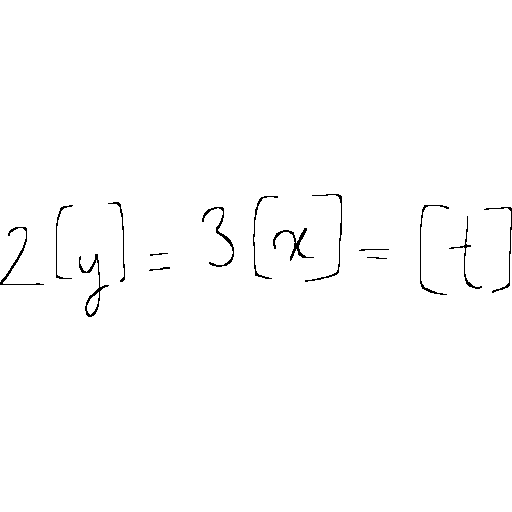 2[y] = 3[x] = [t]